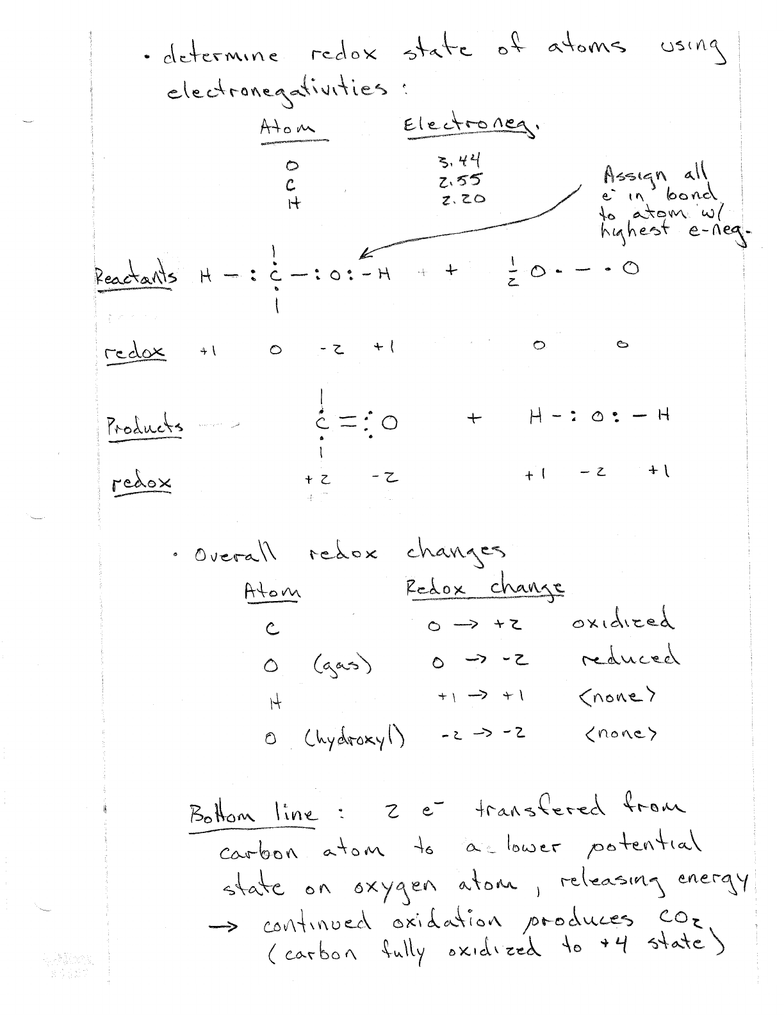 · determine redox state of atoms using
electronegativities :
Atom Electroneg.
O 3.44
C 2.55
H 2.20
Assign all
e⁻ in bond
to atom w/
highest e-neg.
Reactants H – : C – : O : – H + ½ O · – · O
redox +1 0 -2 +1 0 0
Products C = :: O + H – : O : – H
redox +2 -2 +1 -2 +1
· Overall redox changes
Atom Redox change
C 0 → +2 oxidized
O (gas) 0 → -2 reduced
H +1 → +1 <none>
O (hydroxyl) -2 → -2 <none>
Bottom line : 2 e⁻ transfered from
carbon atom to a lower potential
state on oxygen atom, releasing energy
→ continued oxidation produces CO₂
(carbon fully oxidized to +4 state)